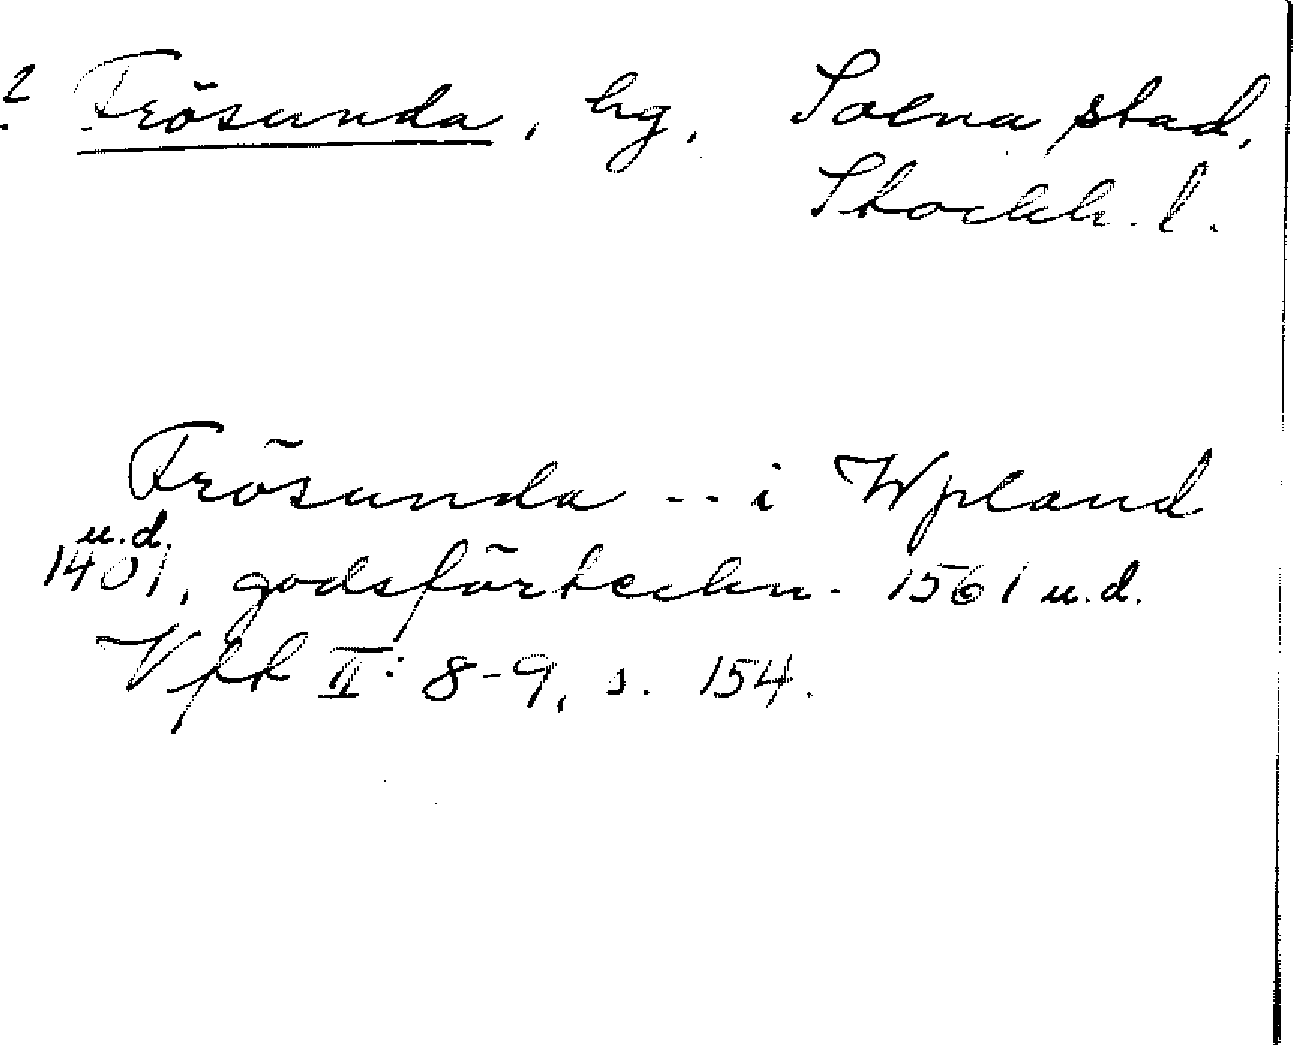 ? Frösunda, hg, Solna stad,
Stockh. l.
Frösunda -- i Wpland
u.d.
1401, godsförteckn. 1561 u.d.
Vfk II: 8-9, s. 154.